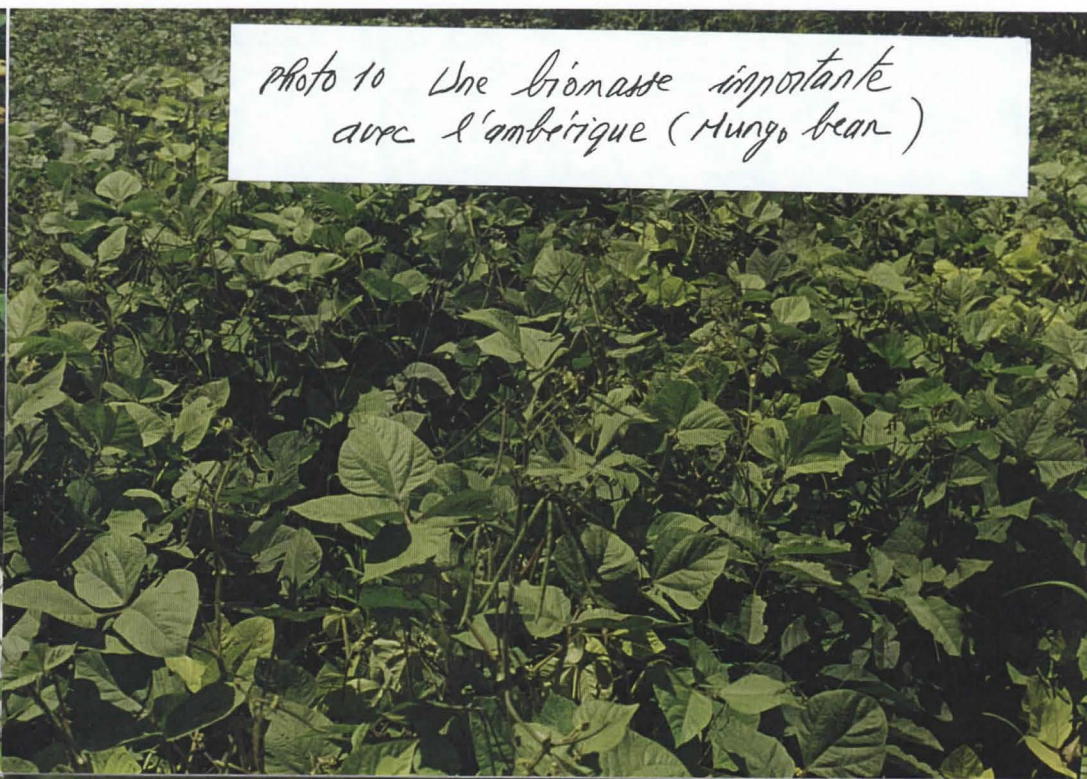 Photo 10 Une biomasse importante
avec l'ambérique (Mungo bean)